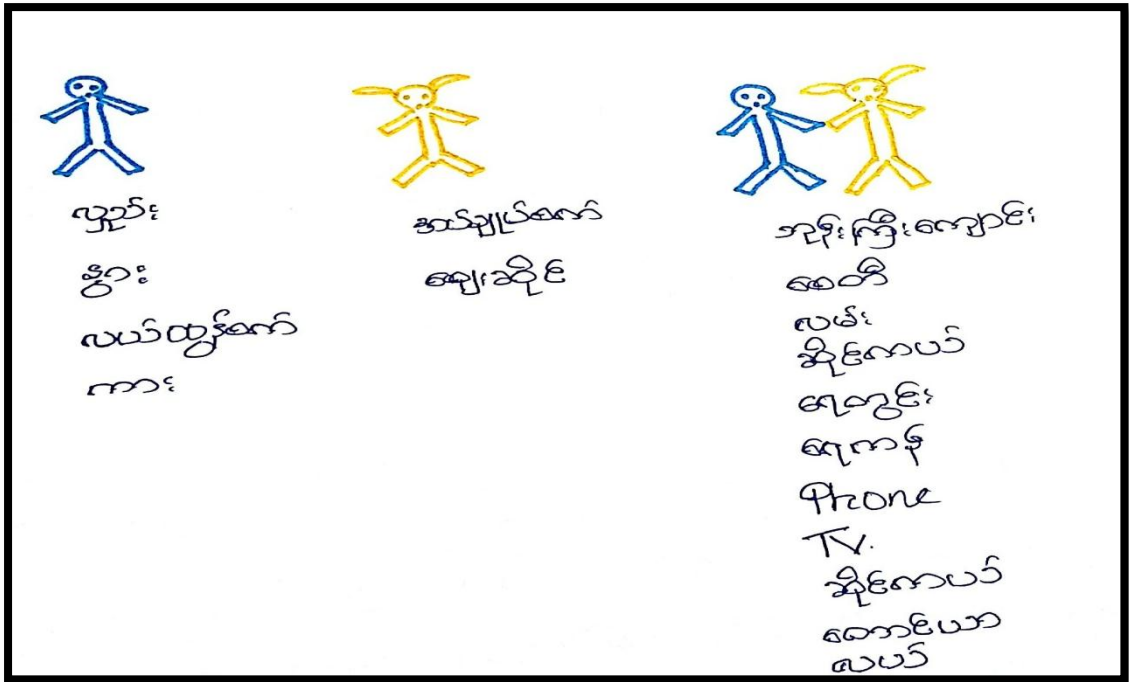 လှည်း
နွား
လယ်ထွန်စက်
ကား
အပ်ချုပ်စက်
ဈေးဆိုင်
ဘုန်းကြီးကျောင်း
စေတီ
လမ်း
ဆိုင်ကယ်
ရေတွင်း
ရေကန်
Phone
TV.
ဆိုင်ကယ်
တောင်ယာ
လယ်